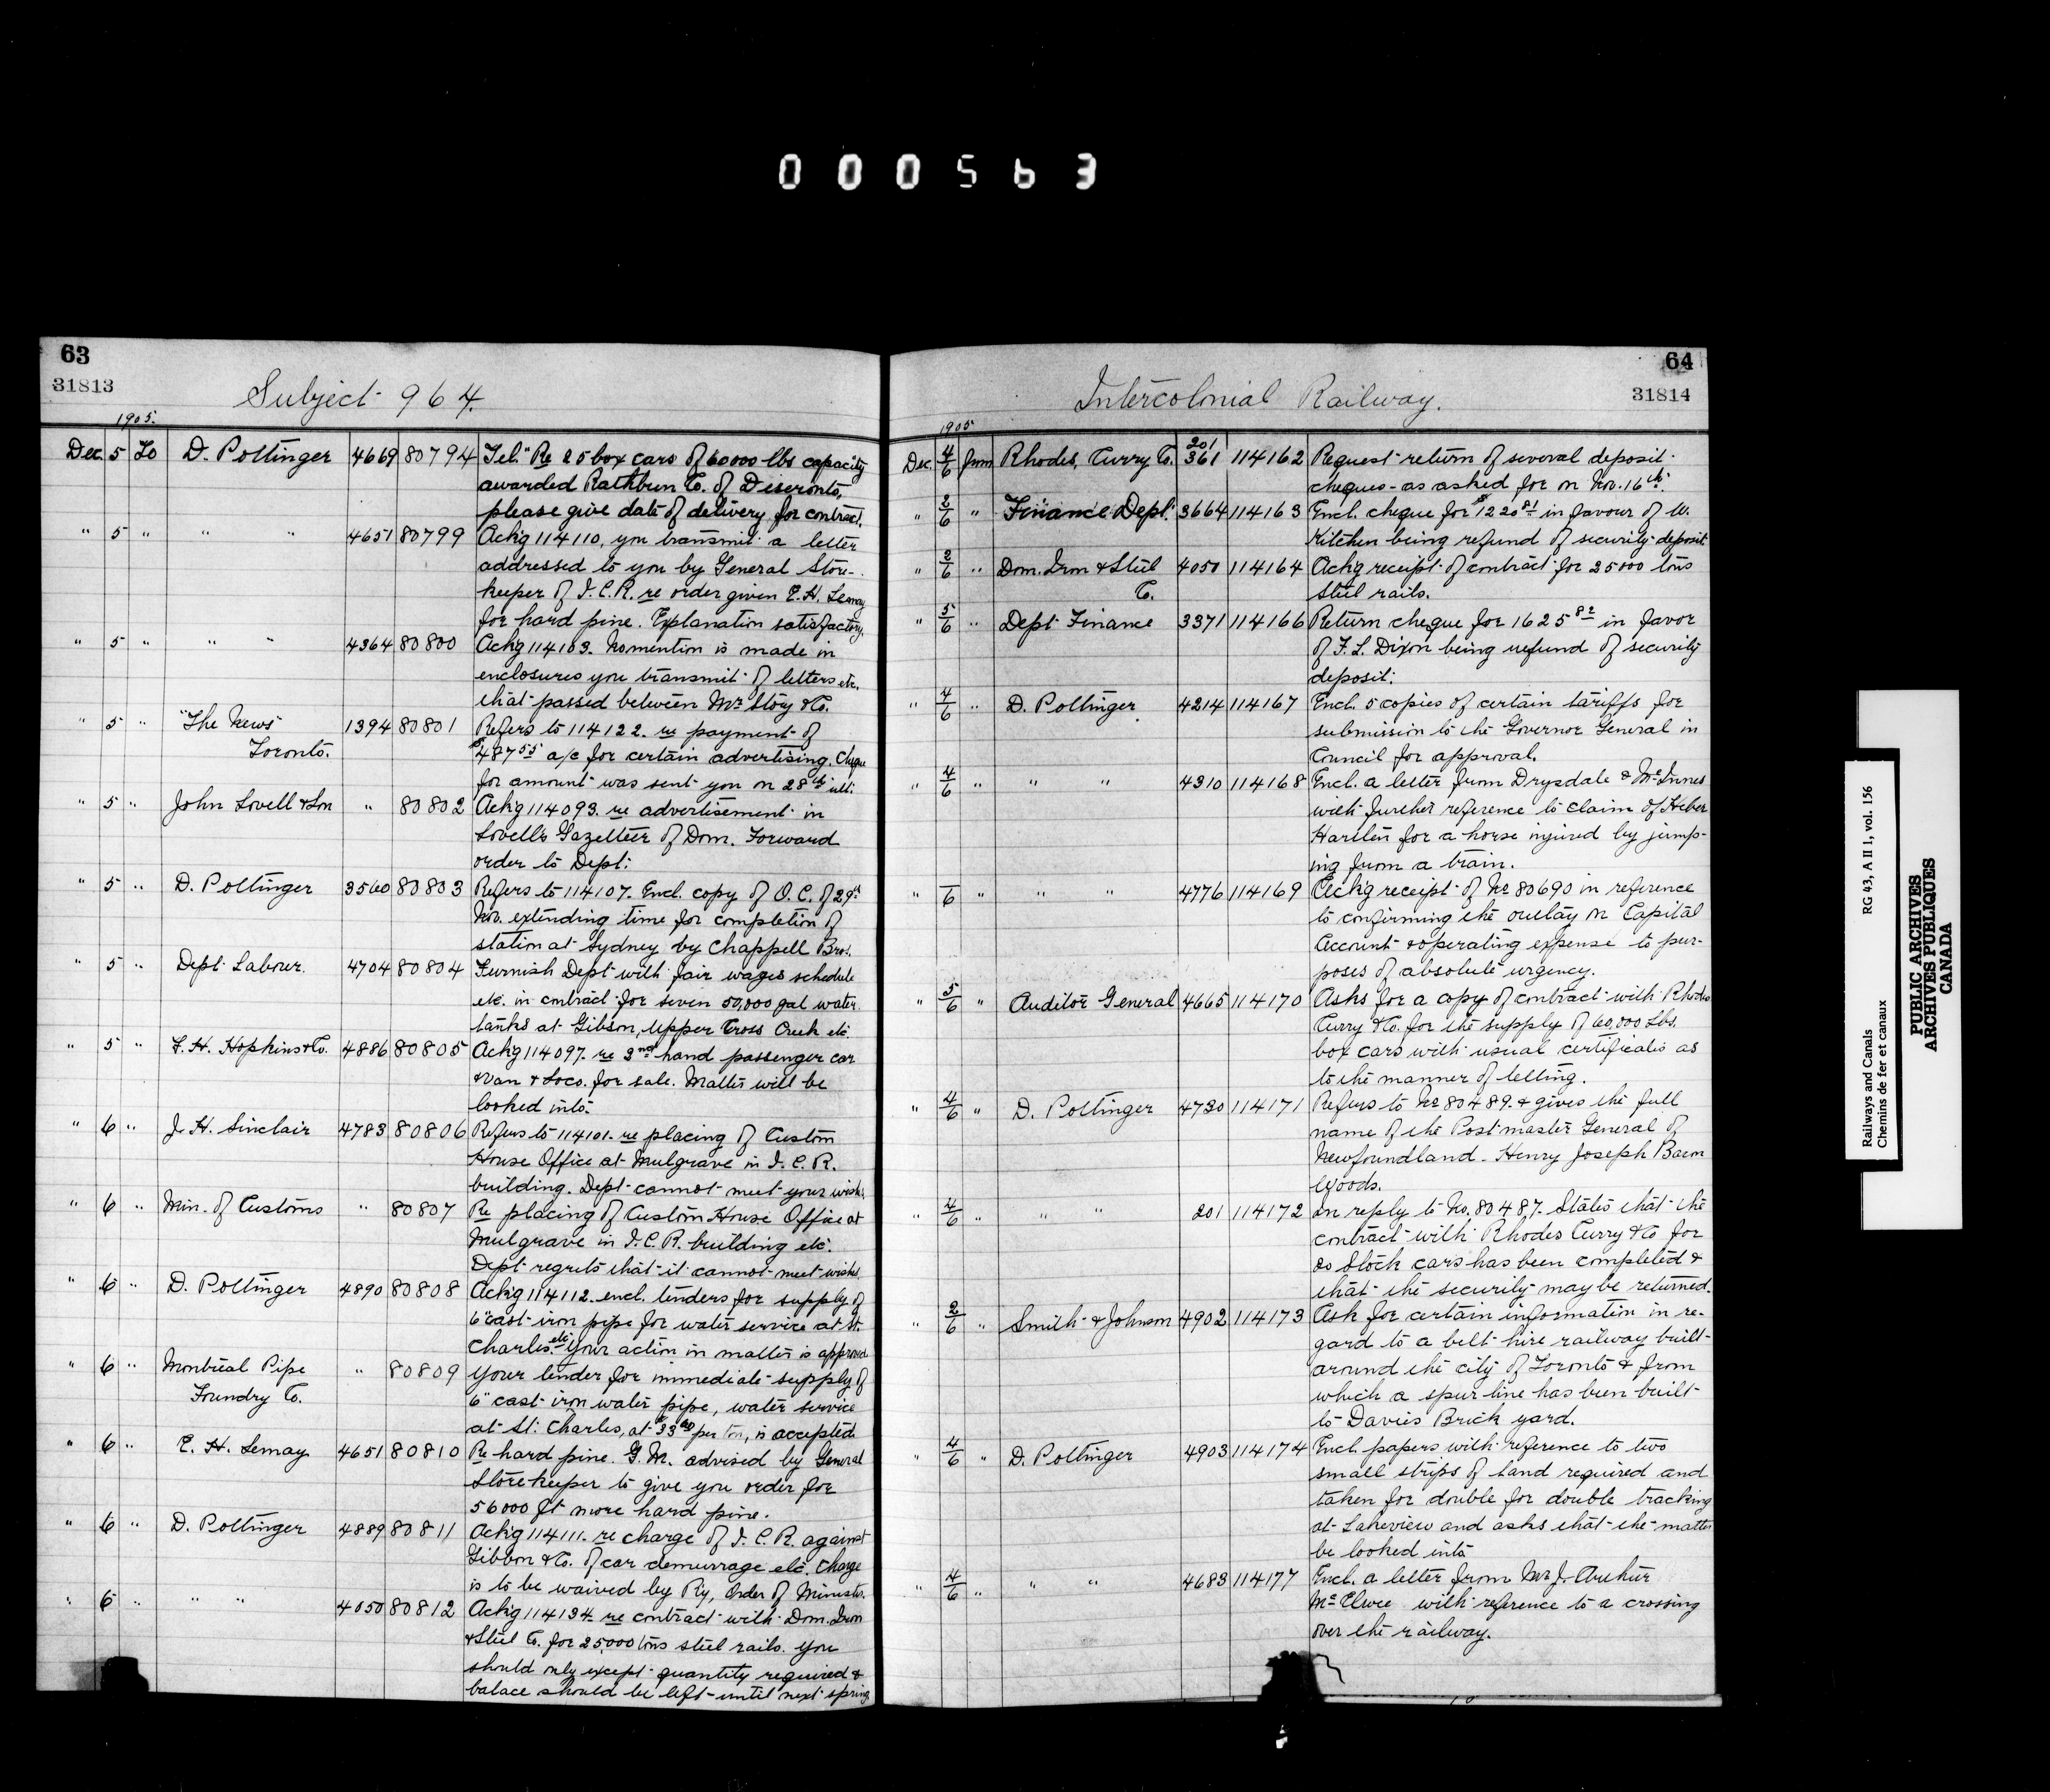 000563
63
31813
Subject 964.
1905.
Dec. 5 To D. Pottinger 4669 80794 Tel. "Re 25 box cars of 60000 lbs capacity
awarded Rathbun Co. of Deseronto,
please give date of delivery for contract.
" 5 " " " 4651 80799 Ackg 114110, you transmit a letter
addressed to you by General Store-
keeper of I.C.R. re order given E.H. Lemay
for hard pine. Explanation satisfactory.
" 5 " " " 4364 80800 Ackg 114103. No mention is made in
enclosures you transmit of letters etc.
that passed between Mr Story & Co.
" 5 " "The News" 1394 80801 Refers to 114122. re payment of
Toronto. $487 55 a/c for certain advertising. Cheque
for amount was sent you on 28th ult.
" 5 " John Lovell & Son " 80802 Ackg 114093. re advertisement in
Lovell's Gazetteer of Dom. Forward
order to Dept.
" 5 " D. Pottinger 3560 80803 Refers to 114107. Encl. copy of O.C. of 29th
Nov. extending time for completion of
station at Sydney by Chappell Bros.
" 5 " Dept. Labour. 4704 80804 Furnish Dept with fair wages schedule
etc. in contract for seven 50,000 gal water
tanks at Gibson, Upper Cross Creek etc
" 5 " F.H. Hopkins & Co. 4886 80805 Ackg 114097. re 2nd hand passenger car
& Van & Loco. for sale. Matter will be
looked into.
" 6 " J.H. Sinclair 4783 80806 Refers to 114101. re placing of Custom
House Office at Mulgrave in I.C.R.
building. Dept cannot meet your wishes.
" 6 " Min. of Customs " 80807 Re placing of Custom House Office at
Mulgrave in I.C.R. building etc.
Dept regrets that it cannot meet wishes.
" 6 " D. Pottinger 4890 80808 Ackg 114112. encl. tenders for supply of
6" cast iron pipe for water service at St.
Charles. etc Your action in matter is approved
" 6 " Montreal Pipe " 80809 Your tender for immediate supply of
Foundry Co. 6" cast iron water pipe, water service
at St. Charles, at $33 00 per ton, is accepted
" 6 " E.H. Lemay 4651 80810 Re hard pine. G.M. advised by General
Storekeeper to give you order for
56000 ft more hard pine.
" 6 " D. Pottinger 4889 80811 Ackg 114111. re charge of I.C.R. against
Gibbon & Co. of car demurrage etc. Charge
is to be waived by Ry, Order of Minister.
" 6 " " " 4050 80812 Ackg 114134 re contract with Dom. Iron
& Steel Co. for 25000 tons steel rails. You
should only except quantity required &
balace should be left until next spring
64
31814
Intercolonial Railway.
1905
Dec. 4/6 from Rhodes, Curry Co. 201 361 114162 Request return of several deposit
cheques as asked for on Nov. 16th.
" 2/6 " Finance Dept. 3664 114163 Encl. cheque for $1220 81 in favour of W.
Kitchen being refund of security deposit
" 2/6 " Dom. Iron & Steel 4050 114164 Ackg receipt of contract for 25000 tons
Co. steel rails.
" 5/6 " Dept Finance 3371 114166 Return cheque for 1625 82 in favor
of F.L. Dixon being refund of security
deposit.
" 4/6 " D. Pottinger 4214 114167 Encl. 5 copies of certain tariffs for
submission to the Governor General in
Council for approval.
" 4/6 " " " 4310 114168 Encl. a letter from Drysdale & McInnes
with further reference to claim of Heber
Hartlen for a horse injured by jump-
ing from a train.
" 6 " " " 4776 114169 Ackg receipt of No 80690 in reference
to confirming the outlay on Capital
Account & operating expense to pur-
poses of absolute urgency.
" 5/6 " Auditor General 4665 114170 Asks for a copy of contract with Rhodes
Curry & Co. for the supply of 60,000 Lbs.
box cars with usual certificates as
to the manner of letting.
" 4/6 " D. Pottinger 4730 114171 Refers to No 80489. & gives the full
name of the Postmaster General of
Newfoundland. Henry Joseph
Woods.
" 4/6 " " " 201 114172 In reply to No. 80487. States that the
contract with Rhodes Curry & Co for
20 Stock cars has been completed &
that the security may be returned.
" 2/6 " Smith & Johnson 4902 114173 Ask for certain information in re-
gard to a belt line railway built
around the city of Toronto & from
which a spur line has been built
to Davies Brick yard.
" 4/6 " D. Pottinger 4903 114174 Encl. papers with reference to two
small strips of land required and
taken for double for double tracking
at Lakeview and asks that the matter
be looked into
" 4/6 " " " 4683 114177 Encl. a letter from Mr J. Arthur
with reference to a crossing
over the railway.
Railways and Canals RG 43, A II 1, vol. 156
Chemins de fer et canaux
PUBLIC ARCHIVES
ARCHIVES PUBLIQUES
CANADA